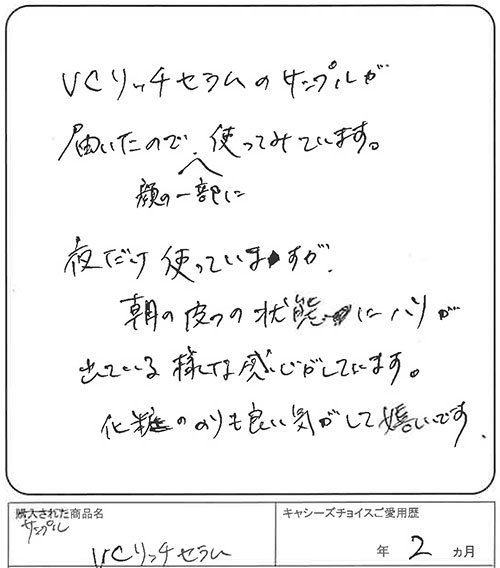 VCリッチセラムのサンプルが
届いたので、使ってみています。
顔の一部に
夜だけ使っていますが、
朝の皮フの状態にハリが
出ている様な感じがしています。
化粧ののりも良い気がして嬉しいです。
購入された商品名
サンプル
VCリッチセラム
キャシーズチョイスご愛用歴
年 2 ヵ月